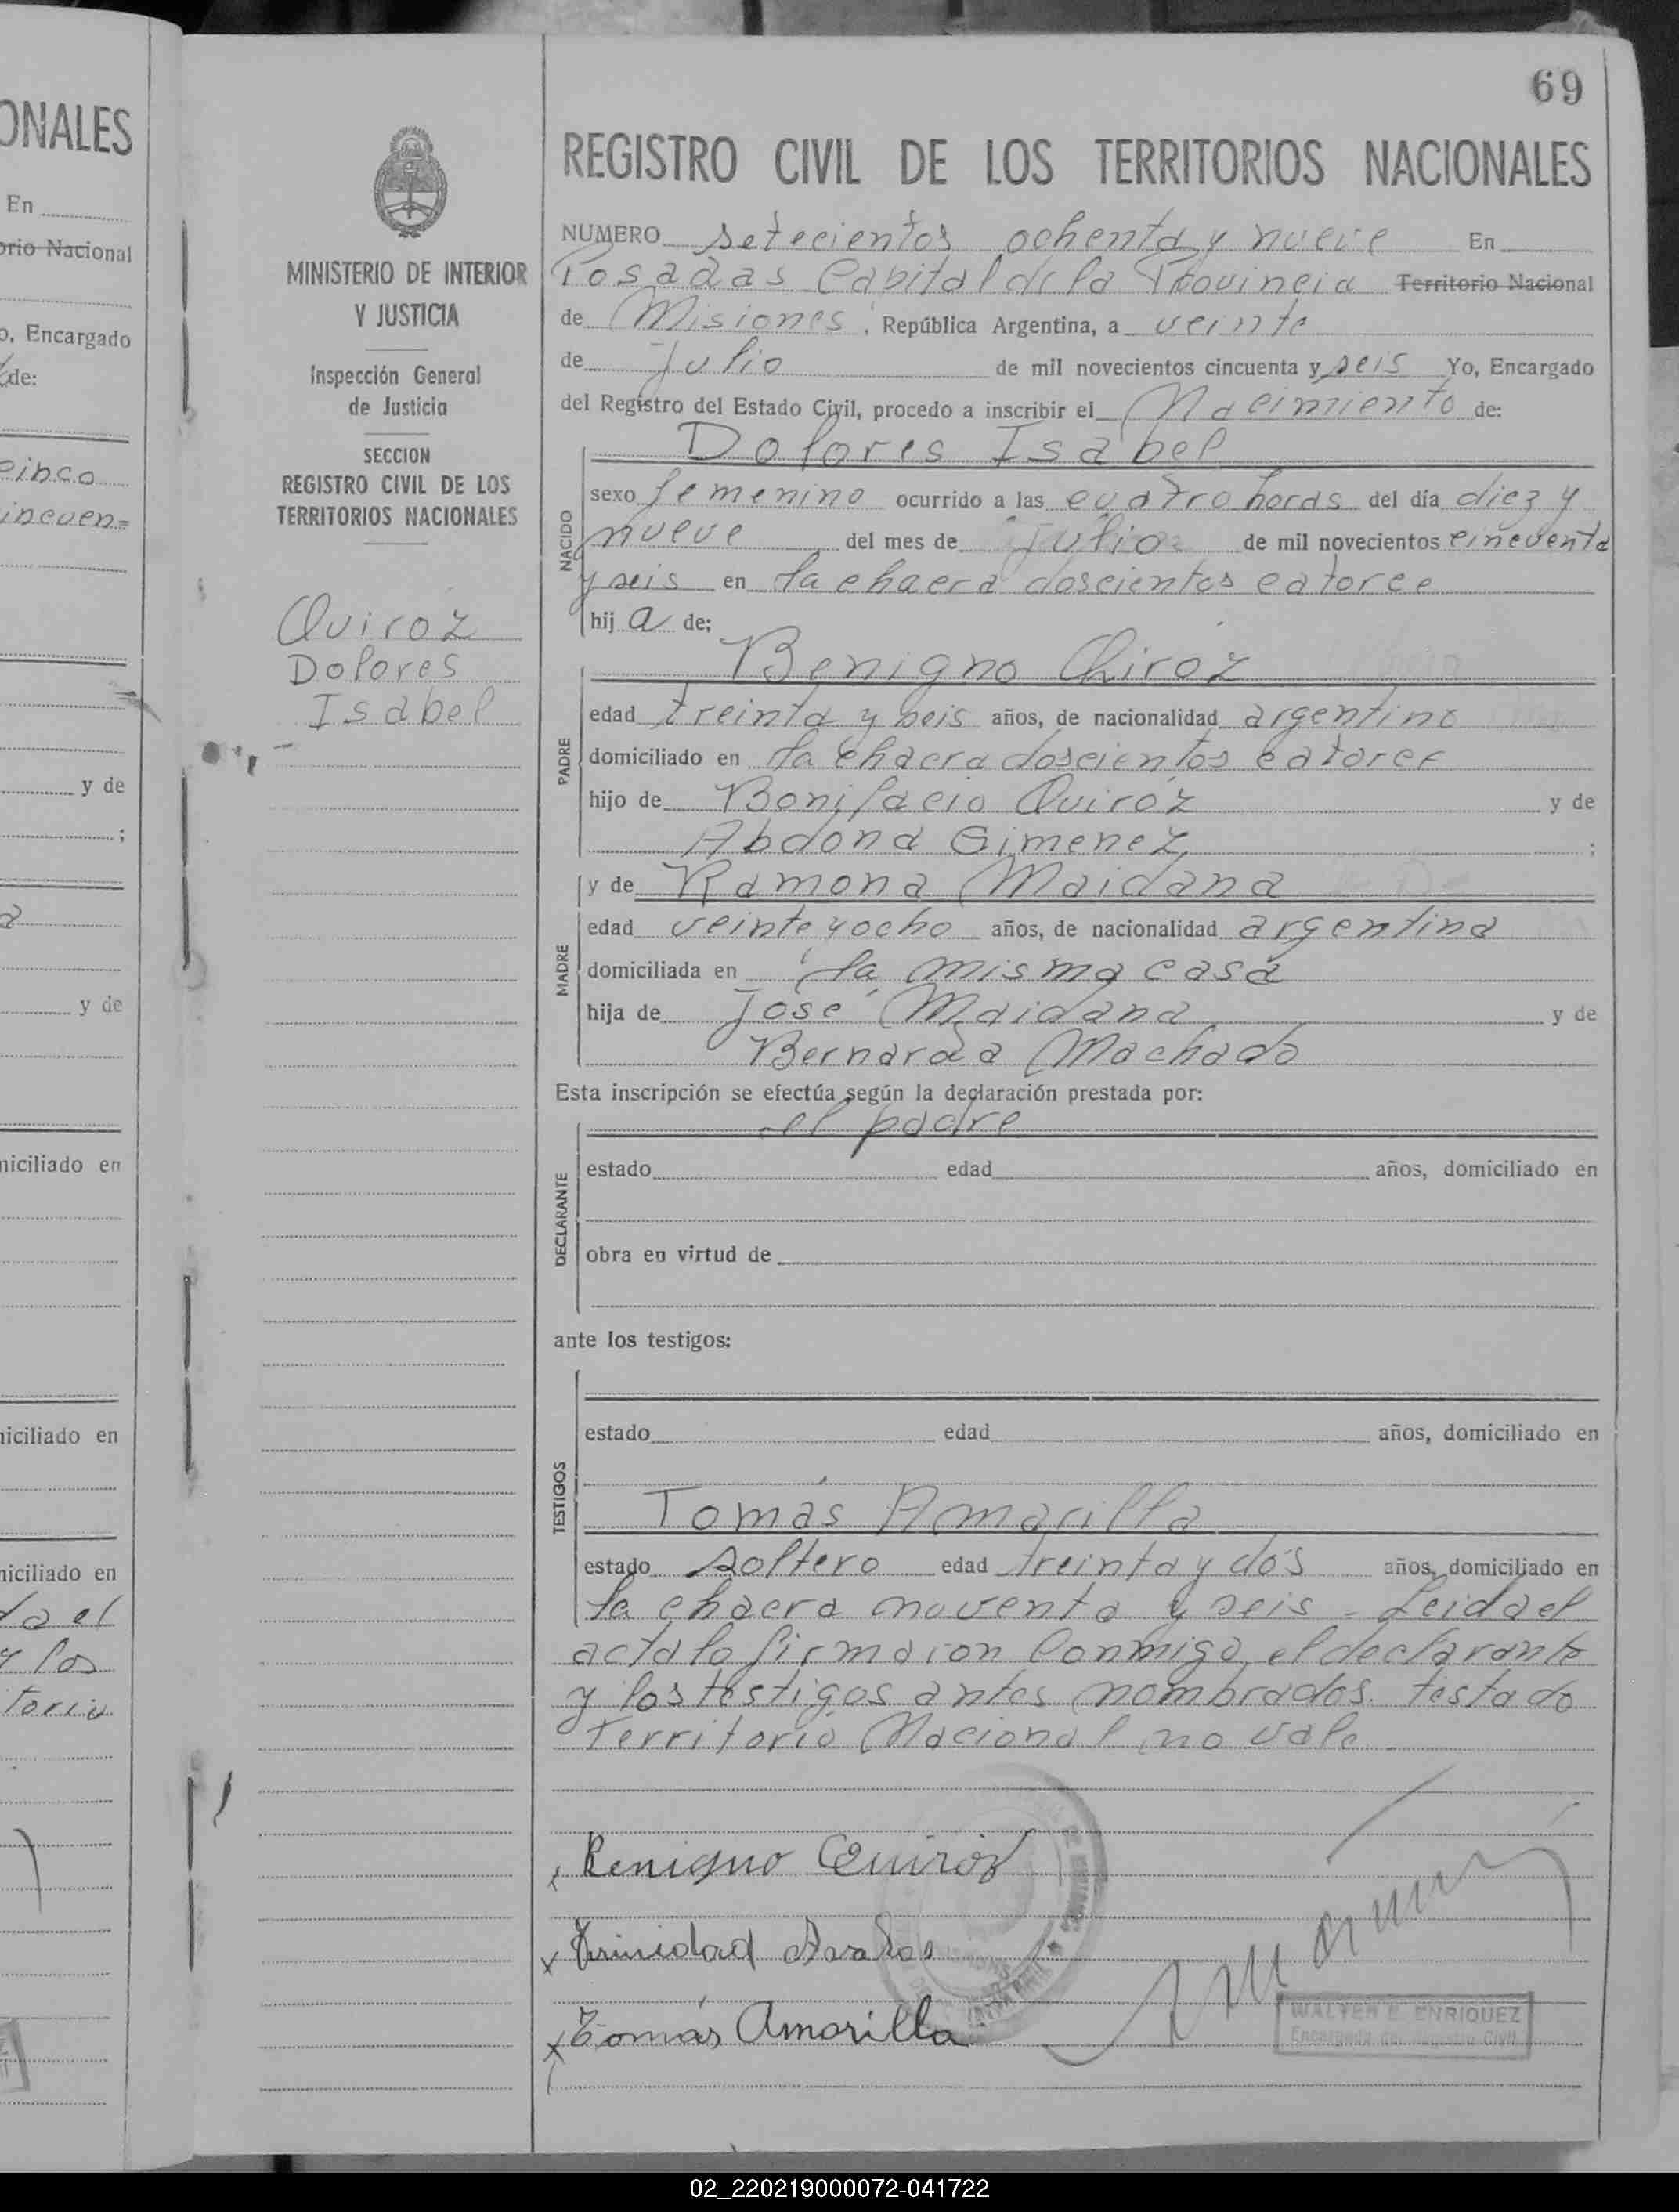 ONALES
En
orio Nacional
o, Encargado
de:
cinco
incuen=
y de
;
y de
niciliado en
niciliado en
niciliado en
da el
y los
torio
69
MINISTERIO DE INTERIOR
Y JUSTICIA
Inspección General
de Justicia
SECCION
REGISTRO CIVIL DE LOS
TERRITORIOS NACIONALES
Quiroz
Dolores
Isabel
REGISTRO CIVIL DE LOS TERRITORIOS NACIONALES
NUMERO setecientos ochenta y nueve En
Posadas Capital de la Provincia Territorio Nacional
de Misiones, República Argentina, a veinte
de Julio de mil novecientos cincuenta y seis Yo, Encargado
del Registro del Estado Civil, procedo a inscribir el Nacimiento de:
Dolores Isabel
NACIDO
sexo femenino ocurrido a las cuatro horas del día diez y
nueve del mes de julio de mil novecientos cincuenta
y seis en la chacra doscientos catorce
hij a de;
Benigno Chiroz
PADRE
edad treinta y seis años, de nacionalidad argentino
domiciliado en la chacra doscientos catorce
hijo de Bonifacio Quiróz y de
Abdona Gimenez ;
y de Ramona Maidana
MADRE
edad veinte y ocho años, de nacionalidad argentina
domiciliada en la misma casa
hija de José Maidana y de
Bernarda Machado
Esta inscripción se efectúa según la declaración prestada por:
el padre
DECLARANTE
estado edad años, domiciliado en
obra en virtud de
ante los testigos:
TESTIGOS
estado edad años, domiciliado en
Tomás Amarilla
estado soltero edad treinta y dos años, domiciliado en
la chacra noventa y seis - Leida el
acta la firmaron conmigo el declarante
y los testigos antes nombrados. testado
Territorio Nacional no vale
Benigno Quiróz
x Trinidad
x Tomás Amarilla
WALTER E. ENRIQUEZ
Encargado del Registro Civil
02_220219000072-041722